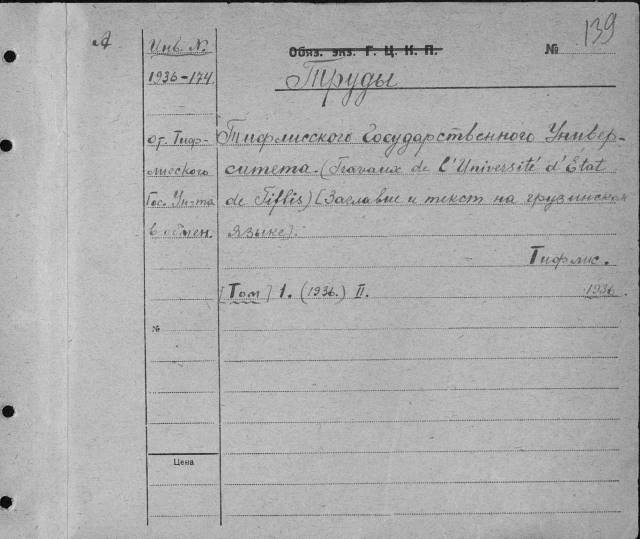 А
Инв. №
Обяз. экз. Г. Ц. К. П.
№ 139
1936-174
Труды
от Тиф-
лисского
Гос. Ун-та
в обмен.
Тифлисского Государственного Универ-
ситета. (Travaux de l'Université d'État
de Tiflis) [Заглавие и текст на грузинском
языке].
Тифлис.
[Том] 1. (1936.) II.
1936
№
Цена